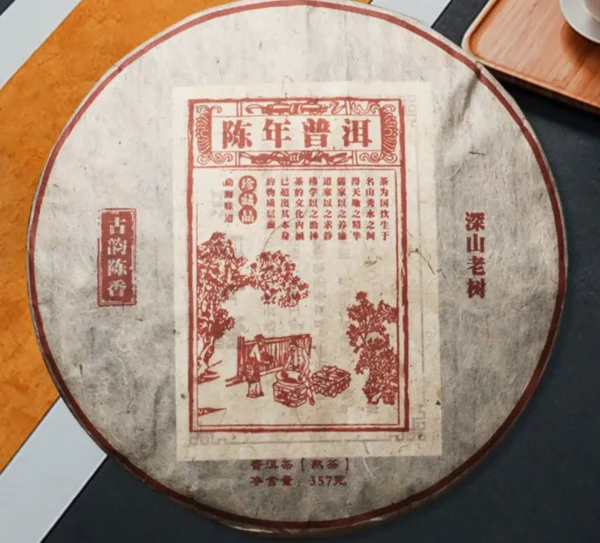 陈年普洱
茶为国饮生于
名山秀水之间
得天地之精华
儒家以之养廉
道家以之求静
佛学以之助神
茶的文化内涵
已超出其本身
的物质层面
珍藏品
勐海味道
古韵陈香
深山老树
普洱茶【熟茶】
净含量：357克